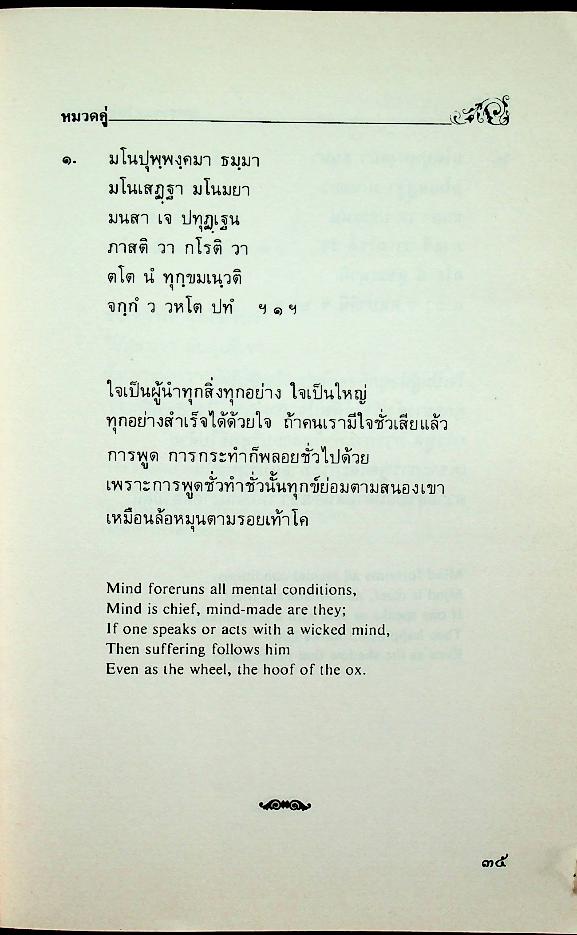 หมวดคู่
๑. มโนปุพฺพงฺคมา ธมฺมา
มโนเสฏฺฐา มโนมยา
มนสา เจ ปทุฏฺเฐน
ภาสติ วา กโรติ วา
ตโต นํ ทุกฺขมเนฺวติ
จกฺกํ ว วหโต ปทํ ฯ ๑ ฯ
ใจเป็นผู้นำทุกสิ่งทุกอย่าง ใจเป็นใหญ่
ทุกอย่างสำเร็จได้ด้วยใจ ถ้าคนเรามีใจชั่วเสียแล้ว
การพูด การกระทำก็พลอยชั่วไปด้วย
เพราะการพูดชั่วทำชั่วนั้นทุกข์ย่อมตามสนองเขา
เหมือนล้อหมุนตามรอยเท้าโค
Mind foreruns all mental conditions,
Mind is chief, mind-made are they;
If one speaks or acts with a wicked mind,
Then suffering follows him
Even as the wheel, the hoof of the ox.
๓๕